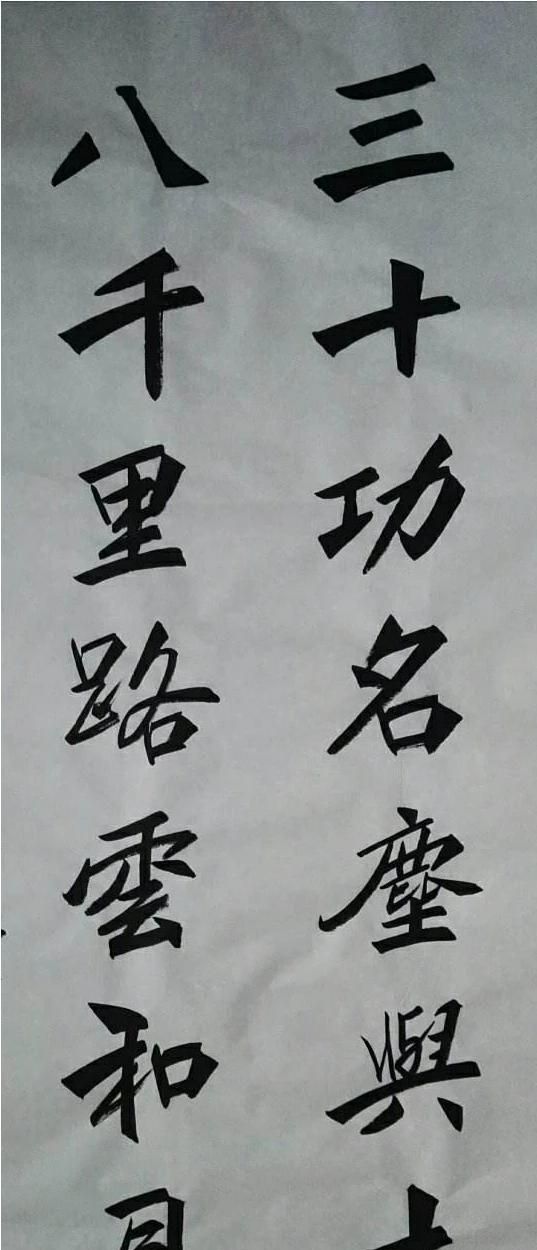 三十功名塵與
八千里路雲和